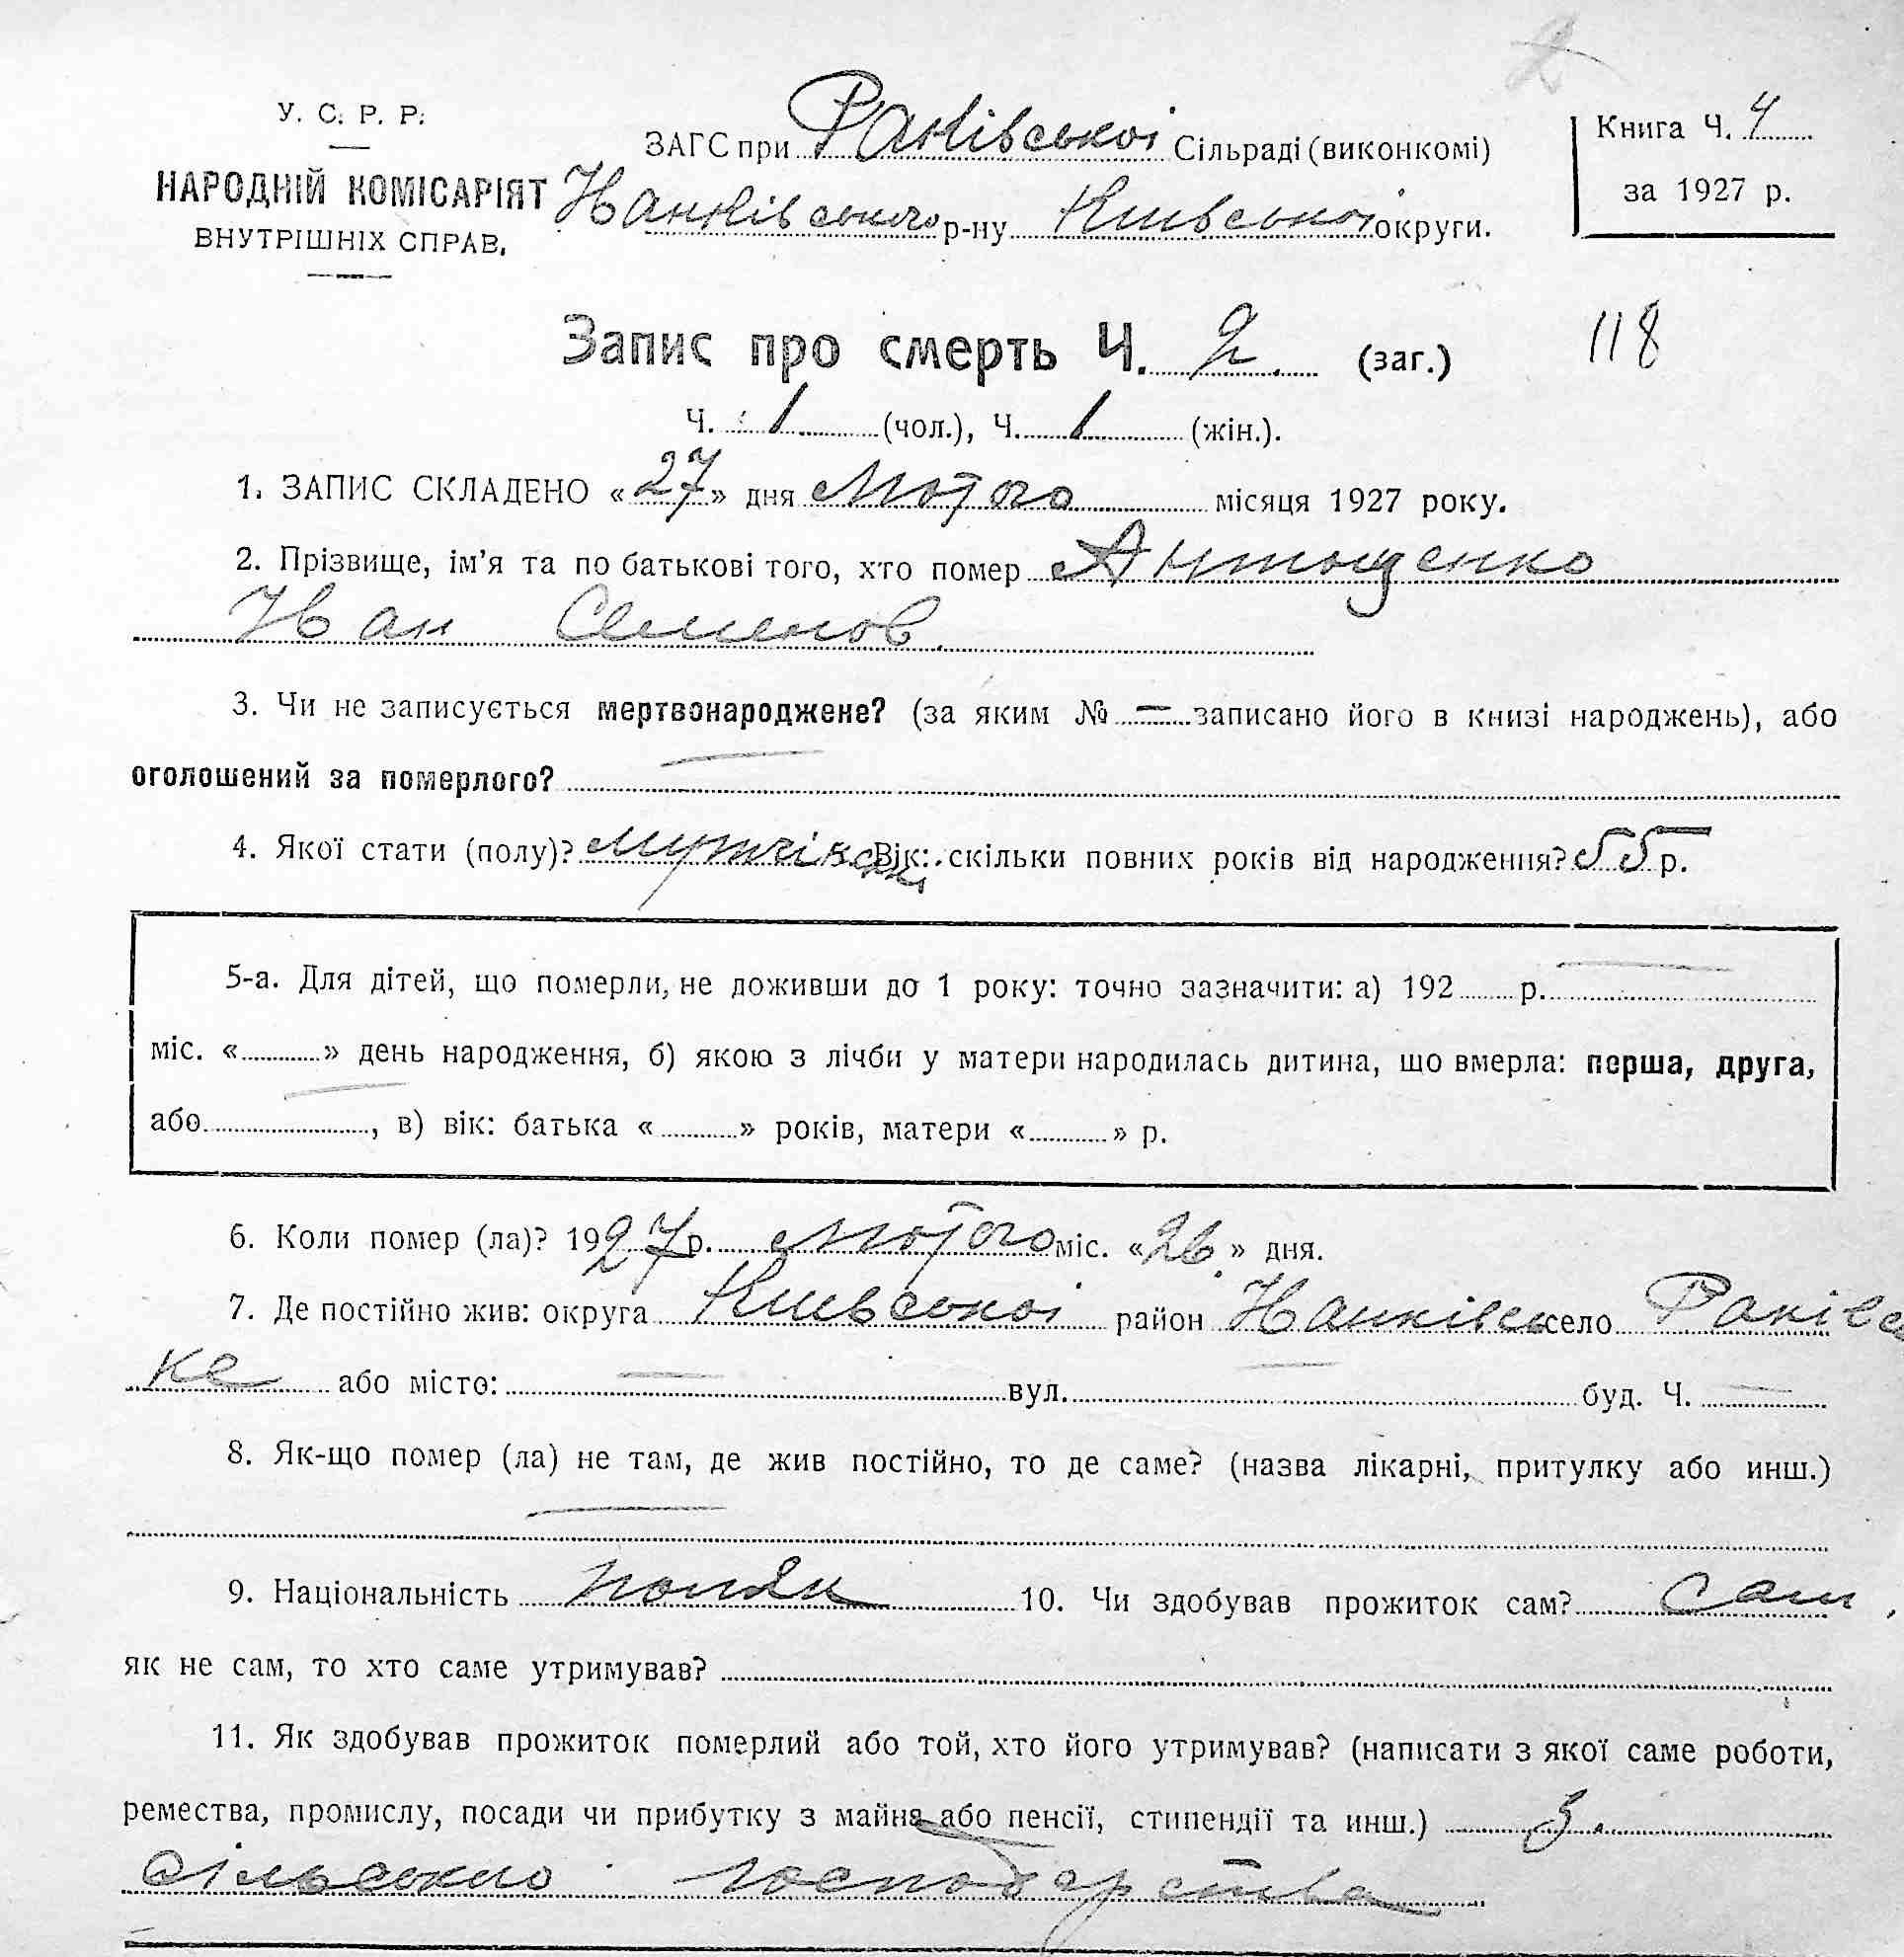 У. С. Р. Р.
НАРОДНІЙ КОМІСАРІЯТ
ВНУТРІШНІХ СПРАВ.
ЗАГС при Раківської Сільраді (виконкомі)
Ханківського р-ну Київської округи.
Книга Ч. 4
за 1927 р.
Запис про смерть Ч. 2 (заг.)
118
Ч. 1 (чол.), Ч. 1 (жін.).
1. ЗАПИС СКЛАДЕНО «27» дня Лютого місяця 1927 року.
2. Прізвище, ім'я та по батькові того, хто помер Антощенко
Іван Семенов
3. Чи не записується мертвонароджене? (за яким № — записано його в книзі народжень), або
оголошений за померлого? —
4. Якої стати (полу)? Вік: скільки повних років від народження? 55 р.
5-а. Для дітей, що померли, не доживши до 1 року: точно зазначити: а) 192 р. —
міс. « » день народження, б) якою з лічби у матери народилась дитина, що вмерла: перша, друга,
або —, в) вік: батька « » років, матери « » р.
6. Коли помер (ла)? 1927 р. Лютого міс. «26» дня.
7. Де постійно жив: округа Київської район Ханківськ село Раківс
ке або місто: — вул. — буд. Ч. —
8. Як-що помер (ла) не там, де жив постійно, то де саме? (назва лікарні, притулку або инш.)
—
9. Національність поляк 10. Чи здобував прожиток сам? Сам,
як не сам, то хто саме утримував?
11. Як здобував прожиток померлий або той, хто його утримував? (написати з якої саме роботи,
ремества, промислу, посади чи прибутку з майна або пенсії, стипендії та инш.) З.
сільського господарства